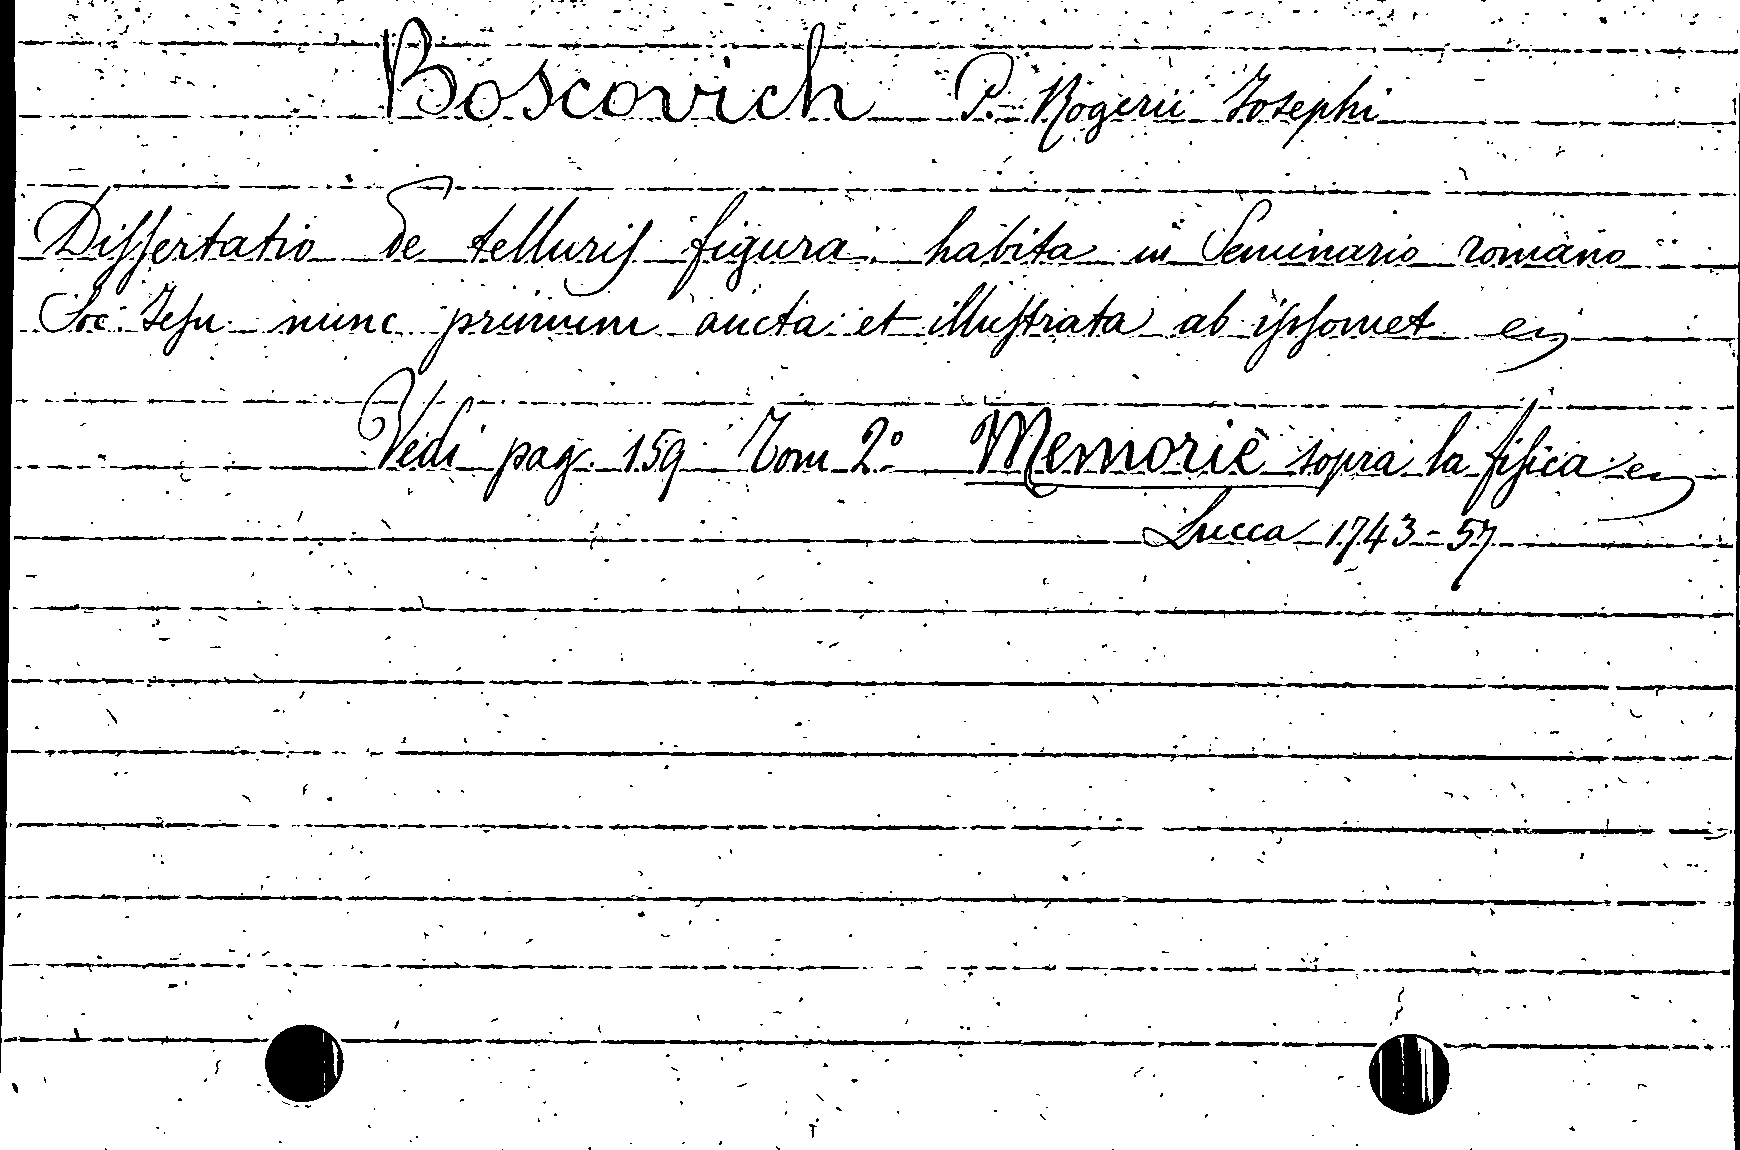 Boscovich P. Rogerii Josephi
Dissertatio de telluris figura habita in Seminario romano
Soc. Jesu nunc primum aucta et illustrata ab ipsomet
Vedi pag. 159 Tom 2º Memorie sopra la fisica
Lucca 1743-57